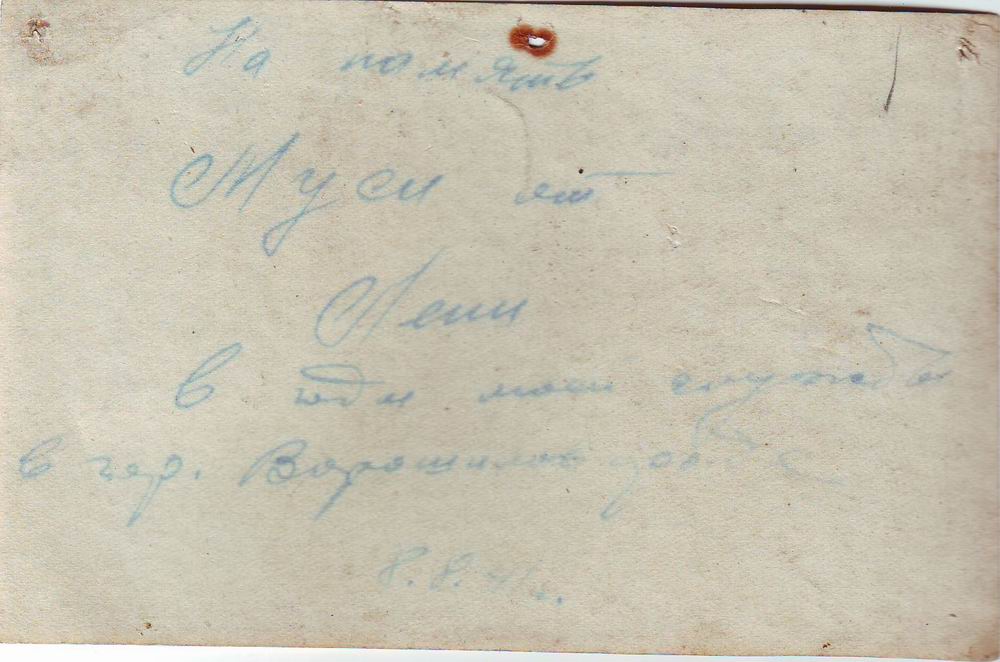 На память
Муси от
Лени
В годы моей службы
в гор. Ворошиловграде
8.8.41г.